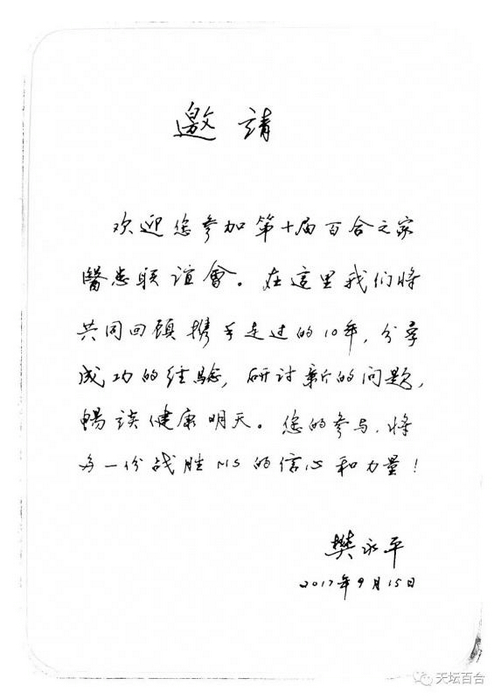 邀请
欢迎您参加第十届百合之家
醫患联谊會。在這里我们将
共同回顧携手走过的10年,分享
成功的经验,研讨新的问题,
暢谈健康明天。您的参与,将
多一份战胜MS的信心和力量!
樊永平
2017年9月15日
天坛百合